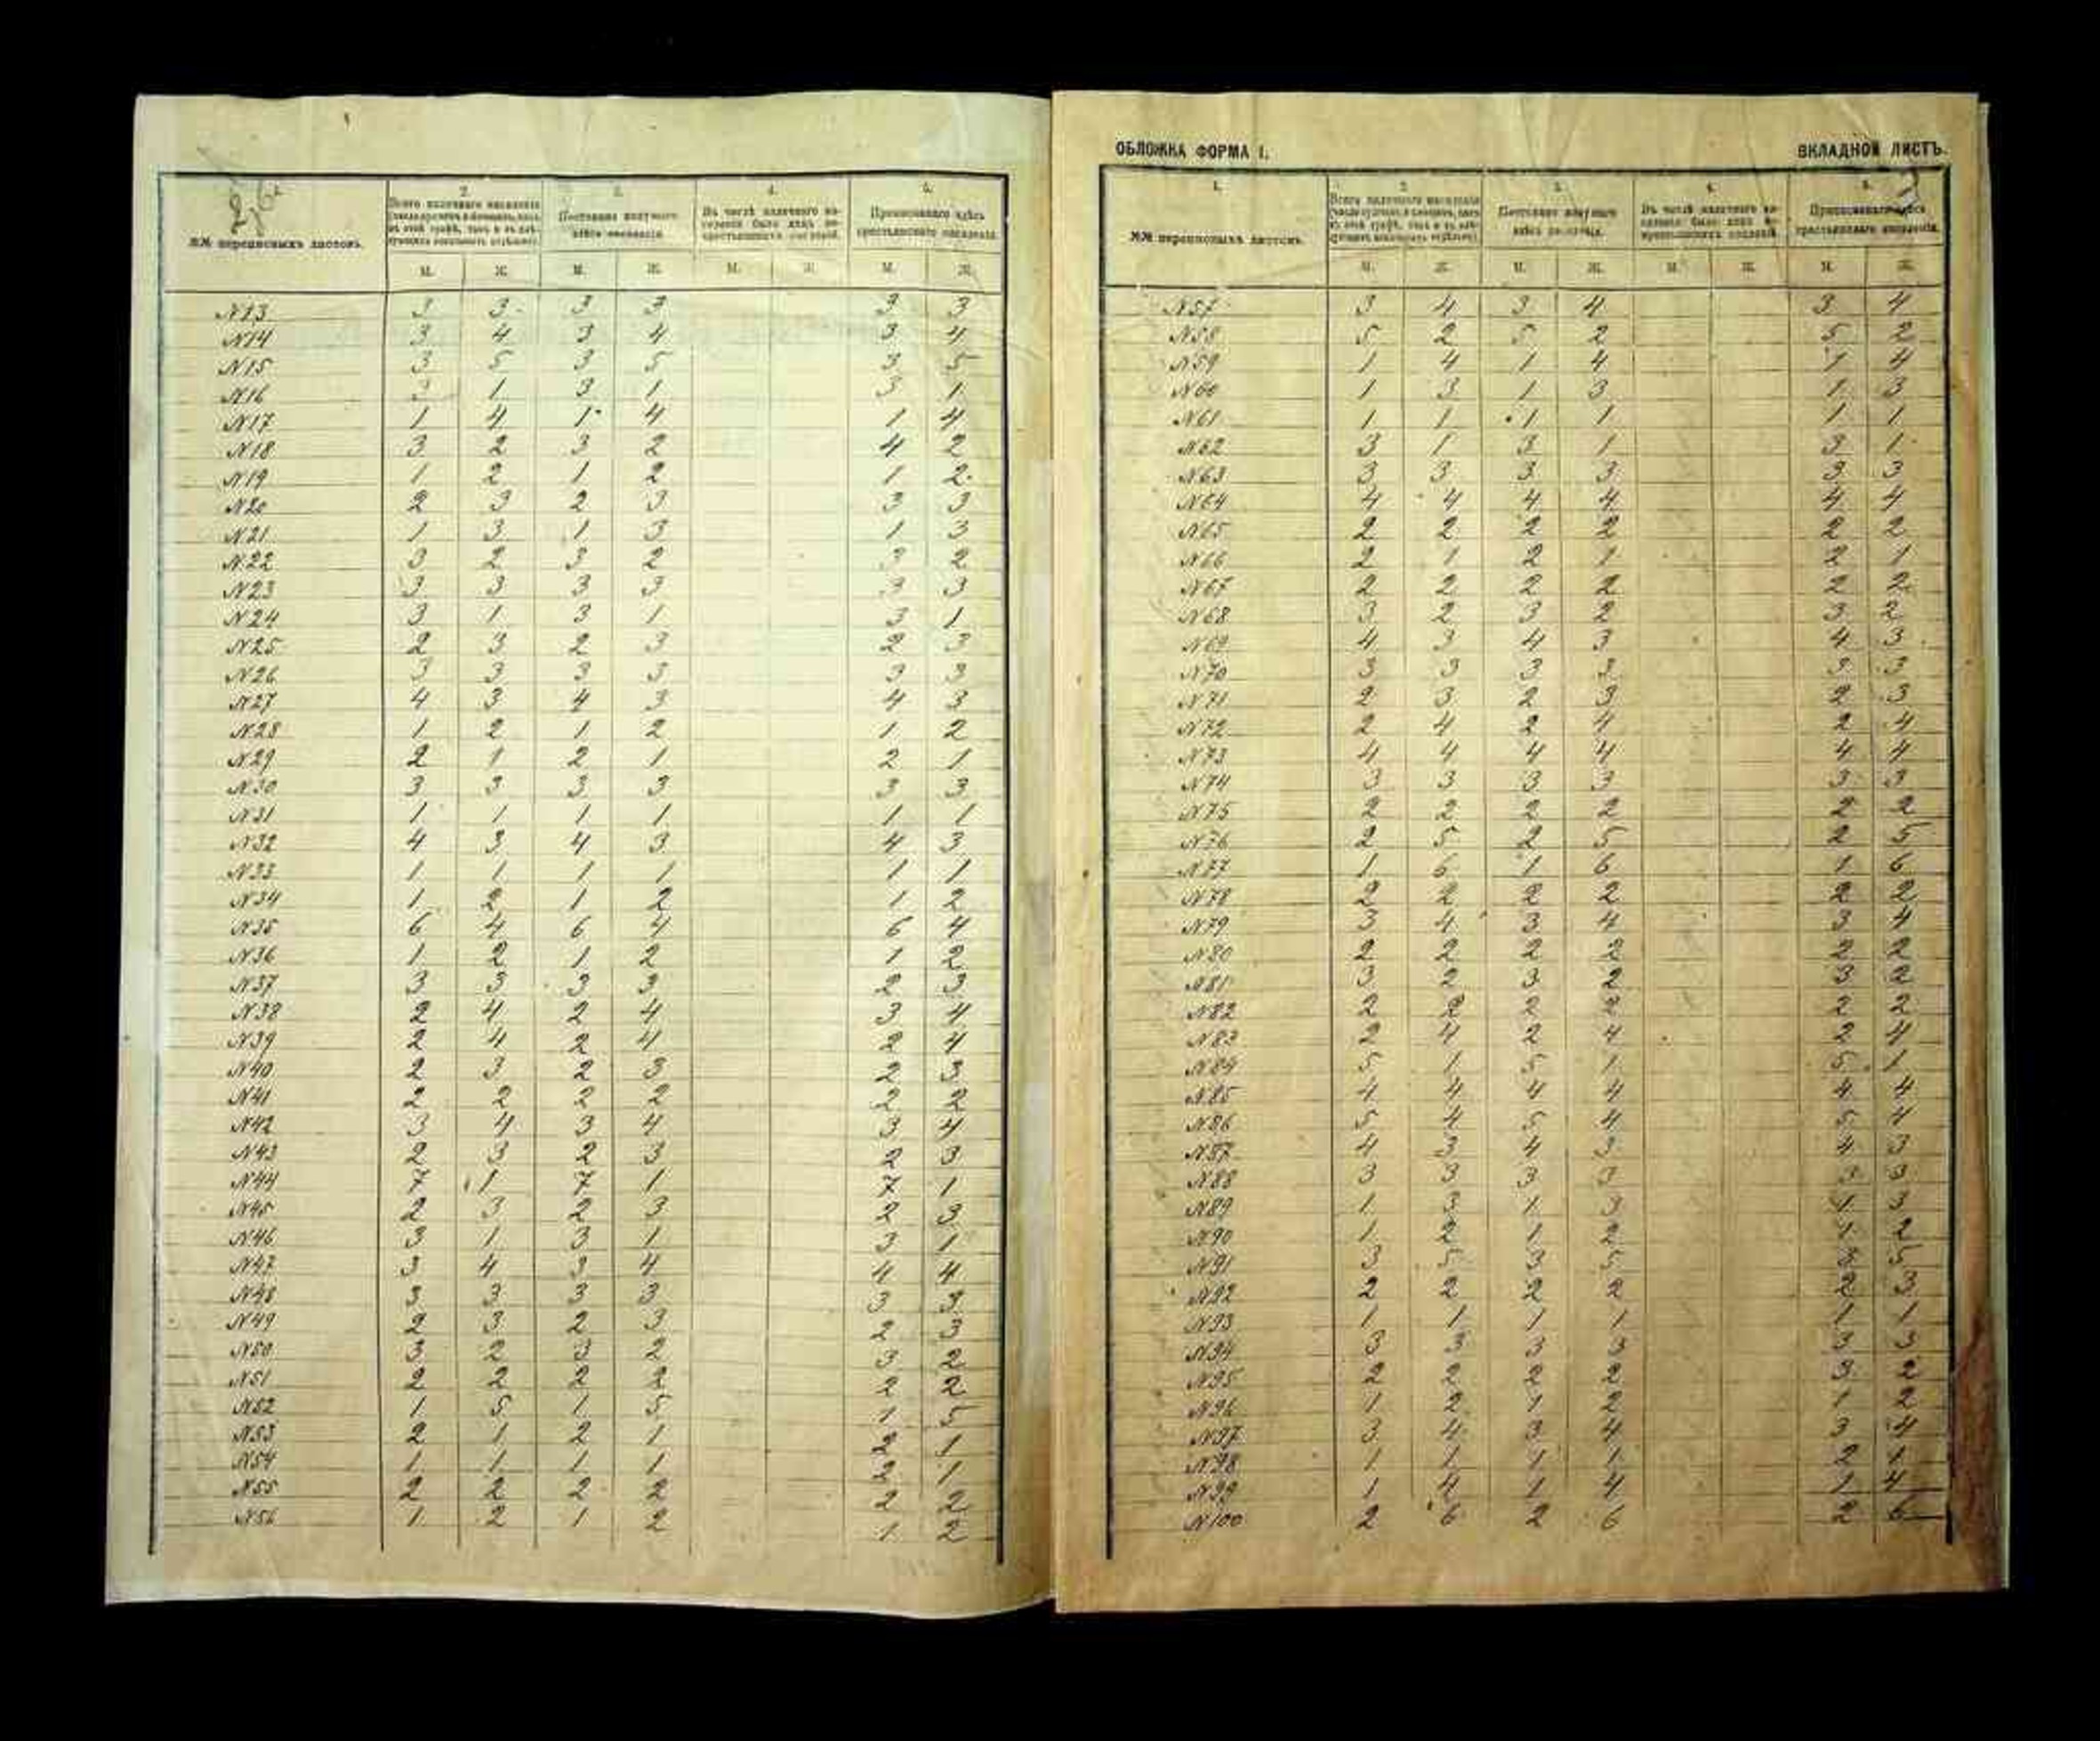 2об
1. 2. 3. 4. 5.
№№ переписныхъ листовъ. Всего наличнаго населенія Постоянно живущаго здѣсь населенія. Въ числѣ наличнаго населенія было лицъ не-крестьянскихъ сословій. Приписаннаго здѣсь крестьянскаго населенія.
М. Ж. М. Ж. М. Ж. М. Ж.
N13 3 3 3 3 3 3
N14 3 4 3 4 3 4
N15 3 5 3 5 3 5
N16 3 1 3 1 3 1
N17 1 4 1 4 1 4
N18 3 2 3 2 4 2
N19 1 2 1 2 1 2
N20 2 3 2 3 3 3
N21 1 3 1 3 1 3
N22 3 2 3 2 3 2
N23 3 3 3 3 3 3
N24 3 1 3 1 3 1
N25 2 3 2 3 2 3
N26 3 3 3 3 3 3
N27 4 3 4 3 4 3
N28 1 2 1 2 1 2
N29 2 1 2 1 2 1
N30 3 3 3 3 3 3
N31 1 1 1 1 1 1
N32 4 3 4 3 4 3
N33 1 1 1 1 1 1
N34 1 2 1 2 1 2
N35 6 4 6 4 6 4
N36 1 2 1 2 1 2
N37 3 3 3 3 2 3
N38 2 4 2 4 3 4
N39 2 4 2 4 2 4
N40 2 3 2 3 2 3
N41 2 2 2 2 2 2
N42 3 4 3 4 3 4
N43 2 3 2 3 2 3
N44 7 1 7 1 7 1
N45 2 3 2 3 2 3
N46 3 1 3 1 3 1
N47 3 4 3 4 4 4
N48 3 3 3 3 3 3
N49 2 3 2 3 2 3
N50 3 2 3 2 3 2
N51 2 2 2 2 2 2
N52 1 5 1 5 1 5
N53 2 1 2 1 2 1
N54 1 1 1 1 2 1
N55 2 2 2 2 2 2
N56 1 2 1 2 1 2
ОБЛОЖКА ФОРМА I. ВКЛАДНОЙ ЛИСТЪ.
1. 2. 3. 4. 5.
№№ переписныхъ листовъ. Всего наличнаго населенія Постоянно живущаго здѣсь населенія. Въ числѣ наличнаго населенія было лицъ не-крестьянскихъ сословій. Приписаннаго здѣсь крестьянскаго населенія.
М. Ж. М. Ж. М. Ж. М. Ж.
N57 3 4 3 4 3 4
N58 5 2 5 2 5 2
N59 1 4 1 4 1 4
N60 1 3 1 3 1 3
N61 1 1 1 1 1 1
N62 3 1 3 1 3 1
N63 3 3 3 3 3 3
N64 4 4 4 4 4 4
N65 2 2 2 2 2 2
N66 2 1 2 1 2 1
N67 2 2 2 2 2 2
N68 3 2 3 2 3 2
N69 4 3 4 3 4 3
N70 3 3 3 3 3 3
N71 2 3 2 3 2 3
N72 2 4 2 4 2 4
N73 4 4 4 4 4 4
N74 3 3 3 3 3 3
N75 2 2 2 2 2 2
N76 2 5 2 5 2 5
N77 1 6 1 6 1 6
N78 2 2 2 2 2 2
N79 3 4 3 4 3 4
N80 2 2 2 2 2 2
N81 3 2 3 2 3 2
N82 2 2 2 2 2 2
N83 2 4 2 4 2 4
N84 5 1 5 1 5 1
N85 4 4 4 4 4 4
N86 5 4 5 4 5 4
N87 4 3 4 3 4 3
N88 3 3 3 3 3 3
N89 1 3 1 3 1 3
N90 1 2 1 2 1 2
N91 3 5 3 5 3 5
N92 2 2 2 2 2 3
N93 1 1 1 1 1 1
N94 3 3 3 3 3 3
N95 2 2 2 2 3 2
N96 1 2 1 2 1 2
N97 3 4 3 4 3 4
N98 1 1 1 1 2 1
N99 1 4 1 4 1 4
N100 2 6 2 6 2 6